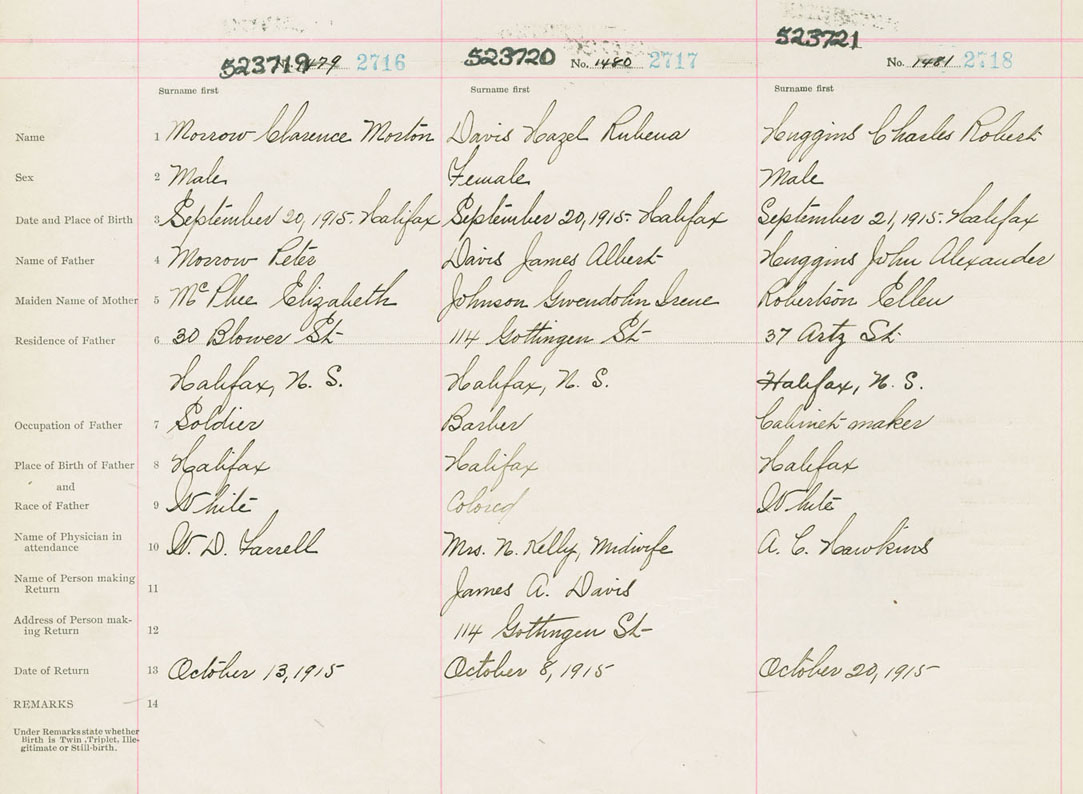 523719 No. 1479 2716 523720 No. 1480 2717 523721 No. 1481 2718
Surname first Surname first Surname first
Name 1 Morrow Clarence Morton Davis Hazel Rubena Huggins Charles Robert
Sex 2 Male Female Male
Date and Place of Birth 3 September 20, 1915. Halifax September 20, 1915. Halifax September 21, 1915. Halifax
Name of Father 4 Morrow Peter Davis James Albert Huggins John Alexander
Maiden Name of Mother 5 McPhee Elizabeth Johnson Gwendolin Irene Robertson Ellen
Residence of Father 6 30 Blower St 114 Gottingen St 37 Artz St.
Halifax, N. S. Halifax, N. S. Halifax, N. S.
Occupation of Father 7 Soldier Barber Cabinet maker
Place of Birth of Father 8 Halifax Halifax Halifax
and
Race of Father 9 White Colored White
Name of Physician in
attendance 10 W. D. Farrell Mrs. N. Kelly, Midwife A. C. Hawkins
Name of Person making
Return 11 James A. Davis
Address of Person mak-
ing Return 12 114 Gottingen St
Date of Return 13 October 13, 1915 October 8, 1915 October 20, 1915
REMARKS 14
Under Remarks state whether
Birth is Twin, Triplet, Ille-
gitimate or Still-birth.